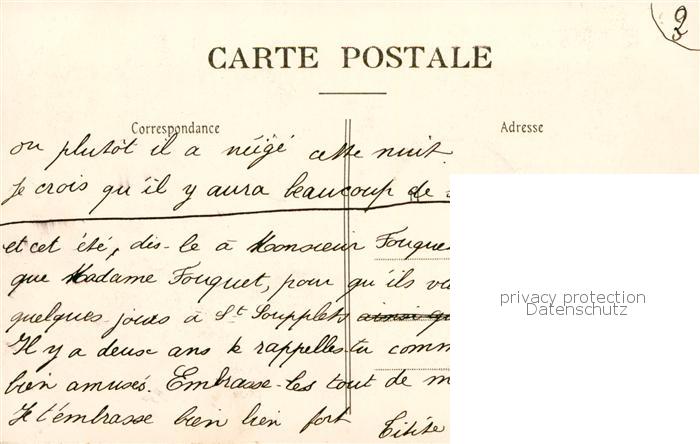 2
CARTE POSTALE
Correspondance
Adresse
ou plutôt il a neigé cette nuit.
Je crois qu'il y aura beaucoup de
et cet été, dis-le à Monsieur Fouque
que Madame Fouquet, pour qu'ils
quelques jours à St Soupplets
Il y a deux ans te rappelles-tu comm
bien amusés. Embrasse-les tout de m
Je t'embrasse bien bien fort
Titite
privacy protection
Datenschutz